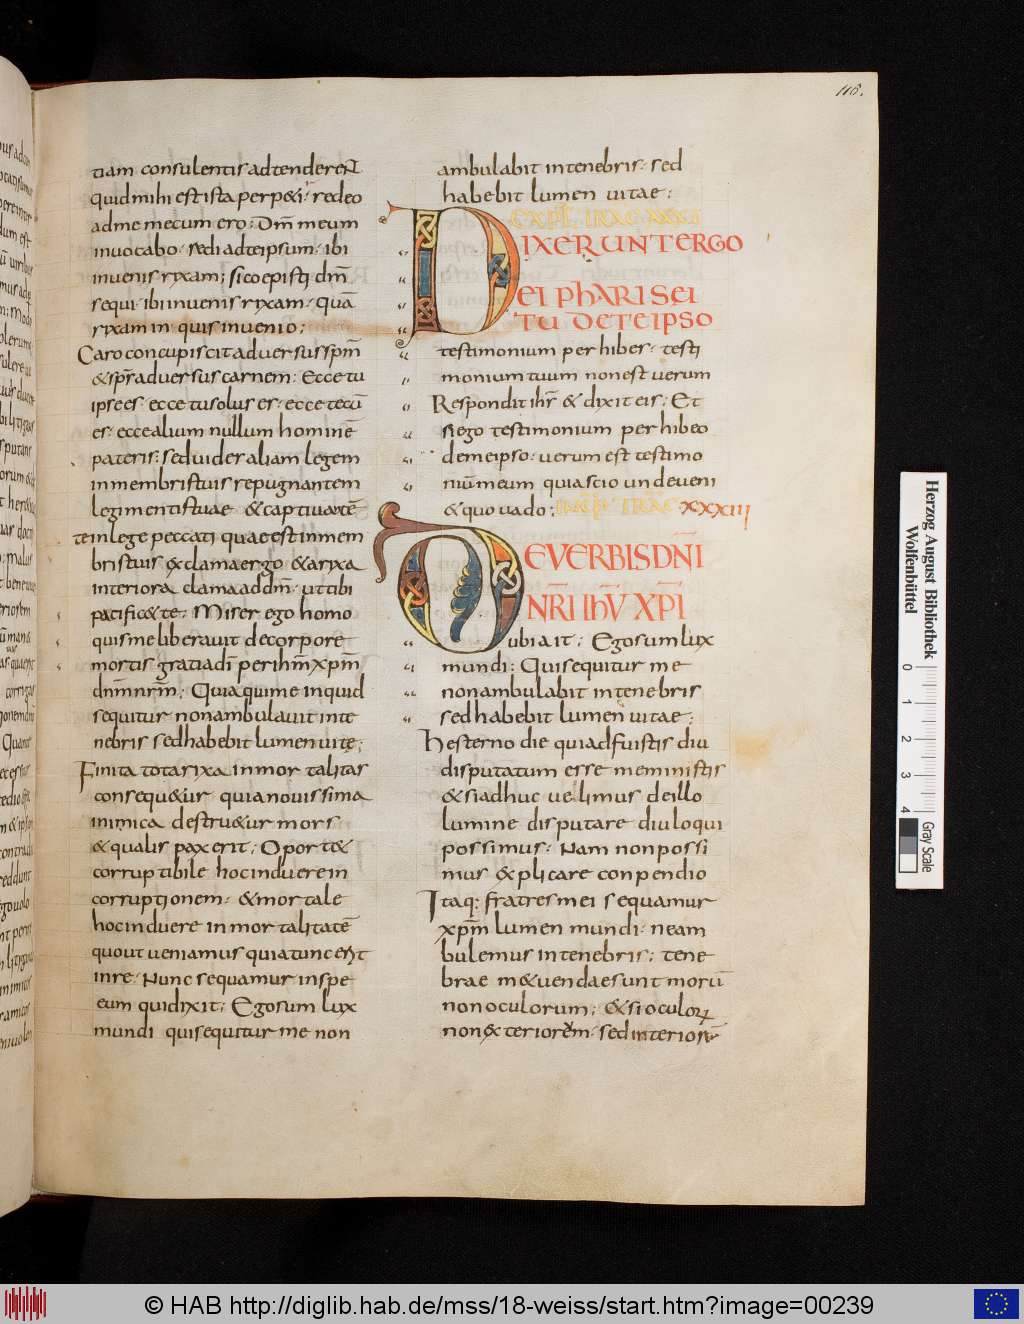 118.
tiam consulentis adtenderent
quid mihi est ista perp&i; redeo
ad me mecum ero; Dm̄ meum
invocabo; sed iad te ipsum; ibi
invenis ryxam; si coepisti dm̄
sequi; ibi invenis ryxam; quā
ryxam inquis invenio;
Caro concupiscit adversus spm̄
& sps̄ adversus carnem; Ecce tu
ipse es; ecce tu solus es; ecce tecū
es; ecce alium nullum hominē
pateris; sed vides aliam legem
in membris tuis repugnantem
legi mentis tuae & captivantē
te in lege peccati quae est in mem
bris tuis; exclama ergo & a ryxa
interiora clama ad dm̄; ut tibi
pacific& te; Miser ego homo
quis me liberavit de corpore
mortis gratia dī per ihm̄ xpm̄
dnm̄ nrm̄; Quia qui me inquid
sequitur non ambulavit in te
nebris sed habebit lumen vite;
Finita tota rixa inmortalitas
consequ&ur quia novissima
inimica destru&ur mors
& qualis pax erit; Oport&
corruptibile hoc induere in
corruptionem; & mortale
hoc induere inmortalitatē
quo ut veniamus quia tunc erit
in re; Nunc sequamur in spe
eum qui dixit; Ego sum lux
mundi qui sequitur me non
ambulabit in tenebris; sed
habebit lumen vitae;
EXPL TRAC
DIXERUNT ERGO
EI PHARISEI
TU DE TE IPSO
testimonium perhibes; testi
monium tuum non est verum
Respondit ihs̄ & dixit eis; Et
si ego testimonium perhibeo
de me ipso; verum est testimo
niū meum quia scio unde veni
& quo vado; INCIP TRAC XXXIIII
DE VERBIS DN̄I
NR̄I IHŪ XP̄I
ubi ait; Ego sum lux
mundi; Qui sequitur me
non ambulabit in tenebris
sed habebit lumen vitae;
Hesterno die qui adfuistis diu
disputatum esse meministis
& si adhuc velimus de illo
lumine disputare diu loqui
possimus; Nam non possi
mus explicare conpendio
Itaq; fratres mei sequamur
xpm̄ lumen mundi; ne am
bulemus in tenebris; tene
brae m&uendae sunt morū
non oculorum; & si oculorum
non exteriorem; sed interiorū
Herzog August Bibliothek
Wolfenbüttel
0 1 2 3 4
Gray Scale
© HAB http://diglib.hab.de/mss/18-weiss/start.htm?image=00239